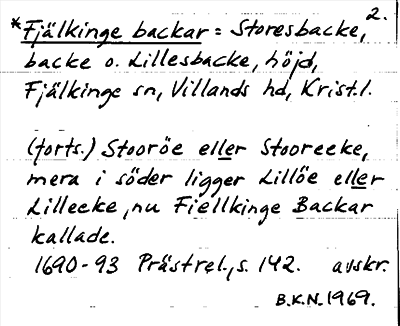 2.
*Fjälkinge backar = Storesbacke,
backe o. Lillesbacke, höjd,
Fjälkinge sn, Villands hd, Krist. l.
(forts.) Stooröe eller Stooreeke,
mera i söder ligger Lillöe eller
Lilleeke, nu Fiellkinge Backar
kallade.
1690-93 Prästrel., s. 142. avskr.
B.K.N. 1969.